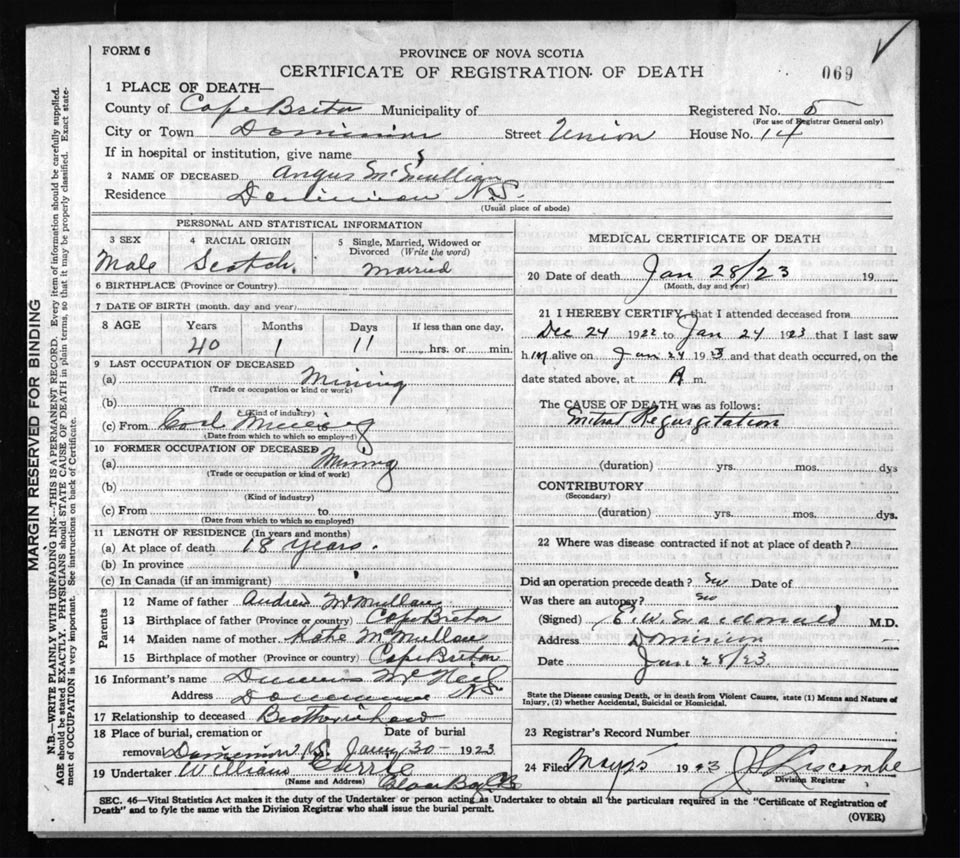 FORM 6
PROVINCE OF NOVA SCOTIA
CERTIFICATE OF REGISTRATION OF DEATH
069
1 PLACE OF DEATH—
County of Cape Breton Municipality of Registered No. 5
(For use of Registrar General only)
City or Town Dominion Street Union House No. 14
If in hospital or institution, give name
2 NAME OF DECEASED Angus
Residence Dominion N.S.
(Usual place of abode)
PERSONAL AND STATISTICAL INFORMATION
3 SEX Male
4 RACIAL ORIGIN Scotch.
5 Single, Married, Widowed or Divorced (Write the word) Married
6 BIRTHPLACE (Province or Country)
7 DATE OF BIRTH (month, day and year)
8 AGE Years Months Days If less than one day,
40 1 11 hrs. or min.
9 LAST OCCUPATION OF DECEASED
(a) Mining
(Trade or occupation or kind of work)
(b)
(Kind of industry)
(c) From Coal Mining
(Date from which to which so employed)
10 FORMER OCCUPATION OF DECEASED
(a) Mining
(Trade or occupation or kind of work)
(b)
(Kind of industry)
(c) From to
(Date from which to which so employed)
11 LENGTH OF RESIDENCE (In years and months)
(a) At place of death 18 years.
(b) In province
(c) In Canada (if an immigrant)
Parents
12 Name of father Andrew McMullan
13 Birthplace of father (Province or country) Cape Breton
14 Maiden name of mother Kate McMullan
15 Birthplace of mother (Province or country) Cape Breton
16 Informant's name McNeil
Address Dominion N.S.
17 Relationship to deceased
18 Place of burial, cremation or Date of burial
removal Dominion N.S. Jany 30 - 1923
19 Undertaker William Currie
(Name and Address) Glace Bay C.B.
MEDICAL CERTIFICATE OF DEATH
20 Date of death Jan 28/23 19
(Month, day and year)
21 I HEREBY CERTIFY, that I attended deceased from
Dec 24 1922 to Jan 24 1923 that I last saw
h im alive on Jan 24 1923 and that death occurred, on the
date stated above, at A m.
The CAUSE OF DEATH was as follows:
Mitral Regurgitation
(duration) yrs. mos. dys
CONTRIBUTORY
(Secondary)
(duration) yrs. mos. dys.
22 Where was disease contracted if not at place of death?
Did an operation precede death? no Date of
Was there an autopsy? no
(Signed) E. W. Macdonald M.D.
Address Dominion
Date Jan 28/23
State the Disease causing Death, or in death from Violent Causes, state (1) Means and Nature of
Injury, (2) whether Accidental, Suicidal or Homicidal.
23 Registrar's Record Number
24 Filed 1923
Division Registrar
SEC. 46—Vital Statistics Act makes it the duty of the Undertaker or person acting as Undertaker to obtain all the particulars required in the "Certificate of Registration of
Death" and to fyle the same with the Division Registrar who shall issue the burial permit.
(OVER)
MARGIN RESERVED FOR BINDING
N.B.—WRITE PLAINLY WITH UNFADING INK—THIS IS A PERMANENT RECORD. Every item of information should be carefully supplied.
AGE should be stated EXACTLY. PHYSICIANS should STATE CAUSE OF DEATH in plain terms, so that it may be properly classified. Exact state-
ment of OCCUPATION is very important. See instructions on back of Certificate.